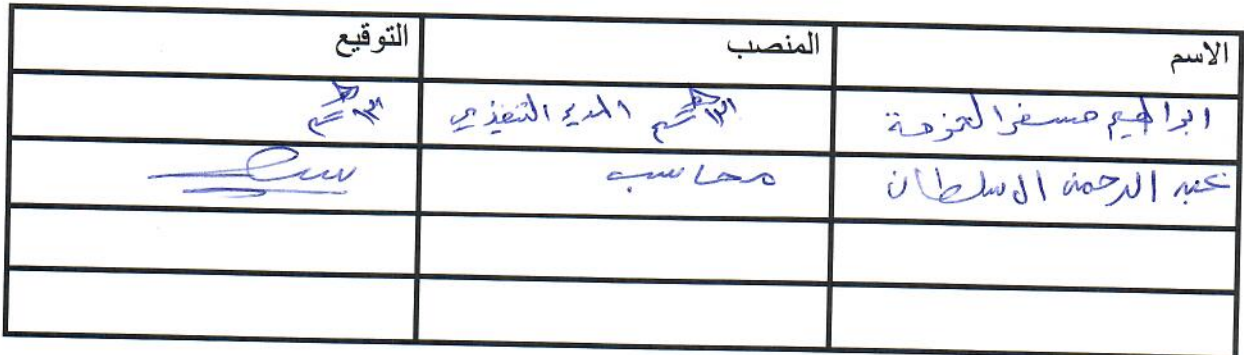 الاسم المنصب التوقيع
ابراهيم مسفر المدير التنفيذي
عبد الرحمن السلطان محاسب